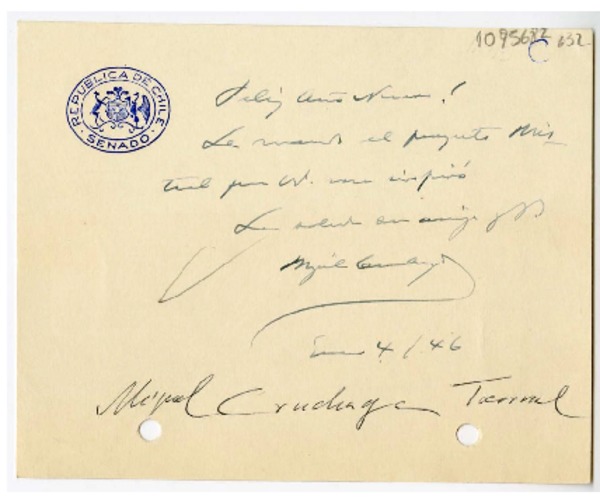 1095682 632
REPUBLICA DE CHILE
SENADO
Feliz Año Nuevo!
Le mando el proyecto Mis_
tral que Ud. me inspiró
Le saluda su amigo y
Miguel Cruchaga
Enero 4/46
Miguel Cruchaga Tocornal